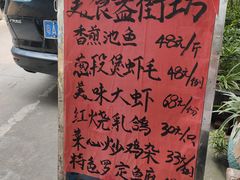 美食益街坊
香煎池鱼 48元/斤
葱段煲虾毛 48元/例
美味大虾 68元/例
红烧乳鸽 30元/只
菜心炒鸡杂 33元/例
特色罗定鱼腐